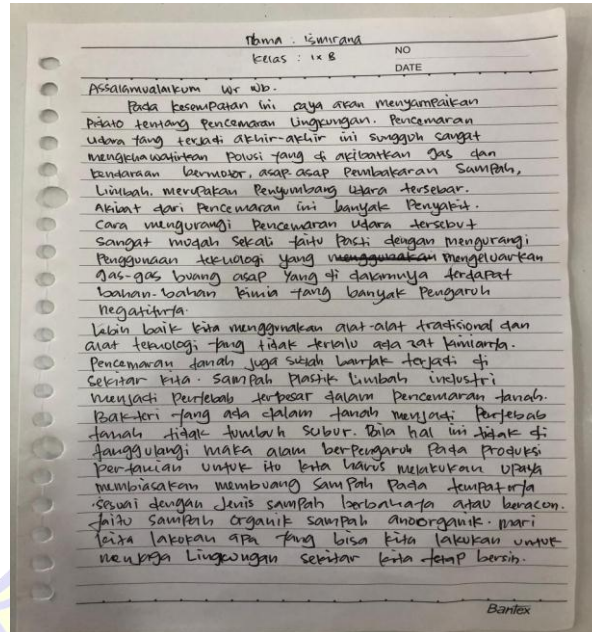 Nama : Ismirana
Kelas : IX B
NO
DATE
Assalamualaikum wr wb.
Pada kesempatan ini saya akan menyampaikan
Pidato tentang Pencemaran Lingkungan. Pencemaran
udara yang terjadi akhir-akhir ini sungguh sangat
mengkhawatirkan Polusi yang di akibatkan gas dan
kendaraan bermotor, asap-asap Pembakaran Sampah,
Limbah. merupakan Penyumbang udara tersebar.
Akibat dari Pencemaran ini banyak Penyakit.
Cara mengurangi Pencemaran udara tersebut
Sangat mudah sekali yaitu Pasti dengan mengurangi
Penggunaan teknologi yang menggunakan mengeluarkan
gas-gas buang asap yang di dalamnya terdapat
bahan-bahan kimia yang banyak Pengaruh
negatifnya.
Lebih baik kita menggunakan alat-alat tradisional dan
alat teknologi yang tidak terlalu ada zat kimianya.
Pencemaran tanah juga sudah banyak terjadi di
sekitar kita. Sampah Plastik Limbah industri
menjadi Penyebab terbesar dalam Pencemaran tanah.
Bakteri yang ada dalam tanah menjadi Penyebab
tanah tidak tumbuh subur. Bila hal ini tidak di
tanggulangi maka alam berpengaruh Pada Produksi
pertanian untuk itu kita harus melakukan upaya
membiasakan membuang sampah Pada tempatnya
sesuai dengan Jenis sampah berbahaya atau beracon.
yaitu sampah organik sampah anoorganik. mari
kita lakukan apa yang bisa kita lakukan untuk
menjaga Lingkungan sekitar kita tetap bersih.
Bantex